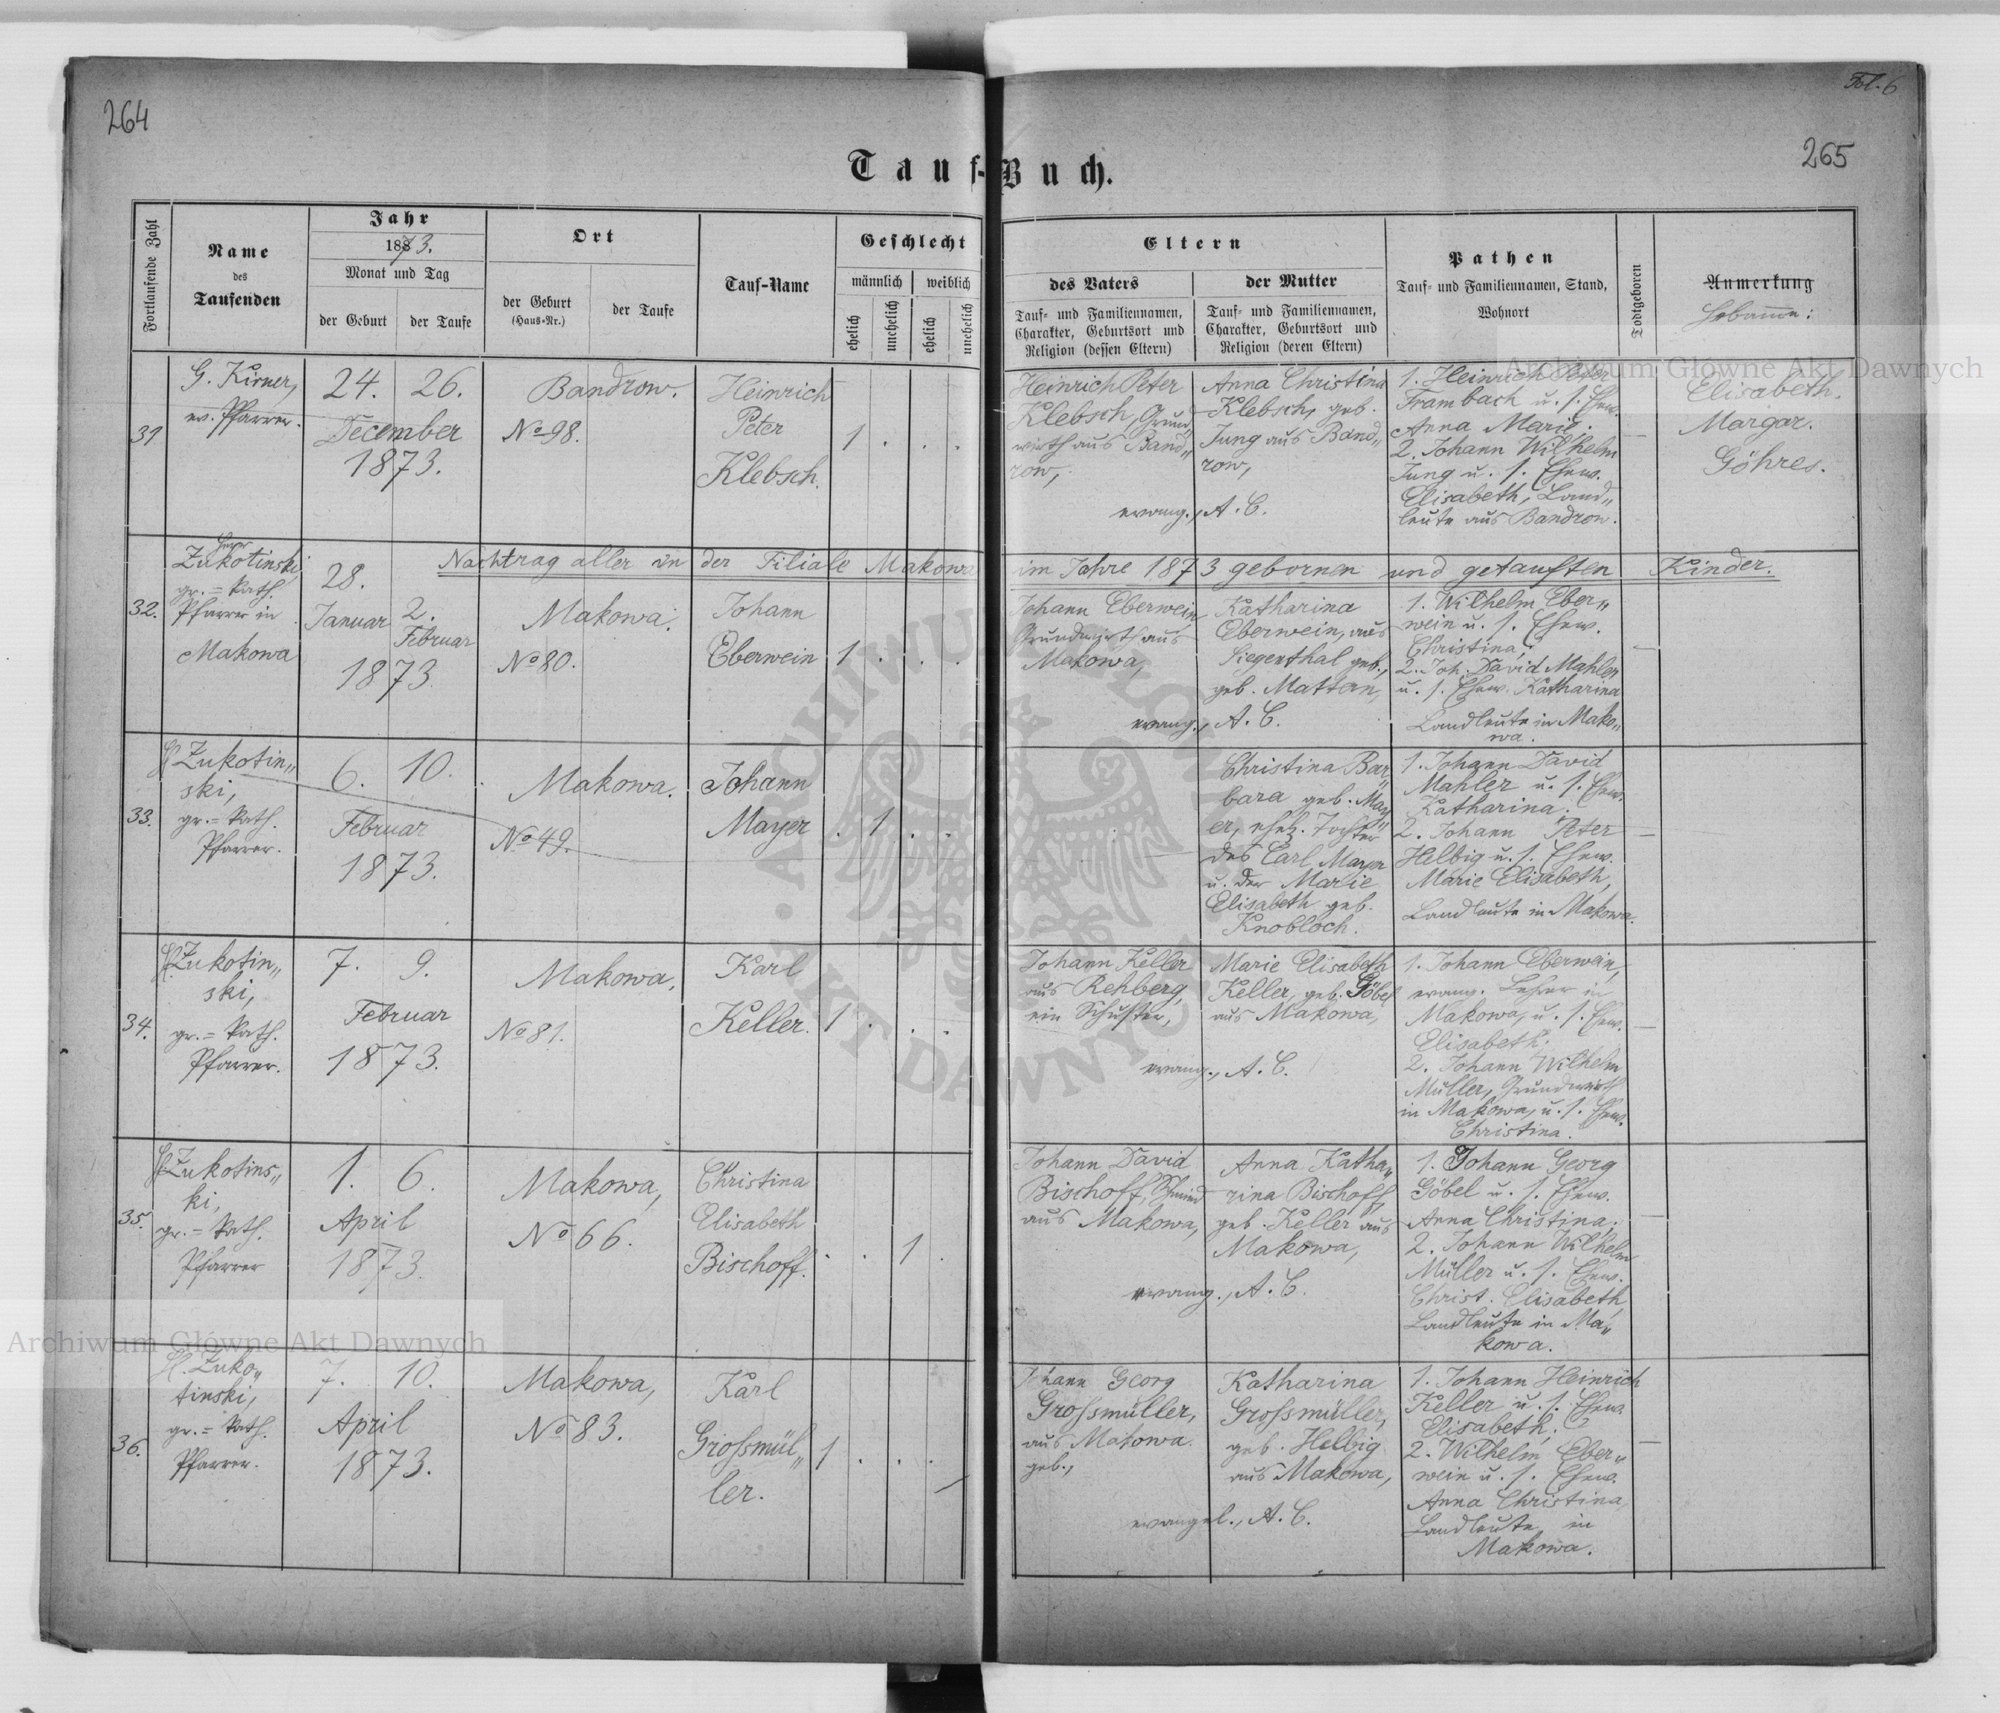 264
Fol. 6
265
Tauf-Buch.
Fortlaufende Zahl
Name
des
Taufenden
Jahr
1873.
Monat und Tag
der Geburt
der Taufe
Ort
der Geburt
(Haus-Nr.)
der Taufe
Tauf-Name
Geschlecht
männlich
weiblich
ehelich
unehelich
ehelich
unehelich
Eltern
des Vaters
Tauf- und Familiennamen,
Charakter, Geburtsort und
Religion (dessen Eltern)
der Mutter
Tauf- und Familiennamen,
Charakter, Geburtsort und
Religion (deren Eltern)
Pathen
Tauf- und Familiennamen, Stand,
Wohnort
Todtgeboren
Anmerkung
Hebamme:
31
G. Kirner,
ev. Pfarrer.
24. 26.
December
1873.
Bandrow.
No 98.
Heinrich
Peter
Klebsch.
1 . . .
Heinrich Peter
Klebsch, Grund„
wirth aus Band„
row,
Anna Christina
Klebsch, geb.
Jung aus Band„
row,
evang., A. C.
1. Heinrich Peter
Frambach u. s. Ehew.
Anna Marie.
2. Johann Wilhelm
Jung u. s. Ehew.
Elisabeth, Land„
leute aus Bandrow.
—
Elisabeth.
Margar.
Göhres.
Nachtrag aller in der Filiale Makowa im Jahre 1873 gebornen und getauften Kinder.
32.
Herr
Zukotinski
gr.=kath.
Pfarrer in
Makowa
28.
Januar
2.
Februar
1873.
Makowa.
No 80.
Johann
Eberwein
1 . . .
Johann Eberwein
Grundwirth aus
Makowa,
Katharina
Eberwein, aus
Siegenthal geb.,
geb. Mattern,
evang., A. C.
1. Wilhelm Eber„
wein u. s. Ehew.
Christina,
2. Joh. David Mahler
u. s. Ehew. Katharina
Landleute in Mako„
wa.
—
33.
H Zukotin„
ski,
gr.=kath.
Pfarrer.
6. 10.
Februar
1873.
Makowa.
No 49.
Johann
Mayer
. 1 . .
—
Christina Bar„
bara geb. May„
er, ehel. Tochter
des Carl Mayer
u. der Marie
Elisabeth geb.
Knobloch.
1. Johann David
Mahler u. s. Ehew.
Katharina.
2. Johann Peter
Helbig u. s. Ehew.
Marie Elisabeth,
Landleute in Makowa.
—
34.
H. Zukotin„
ski,
gr.=kath.
Pfarrer.
7. 9.
Februar
1873.
Makowa,
No 81.
Karl
Keller.
1 . . .
Johann Keller
aus Rehberg,
ein Schuster,
Marie Elisabeth
Keller, geb. Göbel
aus Makowa,
evang., A. C.
1. Johann Eberwein,
evang. Lehrer in
Makowa, u. s. Ehew.
Elisabeth.
2. Johann Wilhelm
Müller, Grundwirth
in Makowa, u. s. Ehew.
Christina.
—
35.
H Zukotins„
ki,
gr.=kath.
Pfarrer
1. 6.
April
1873.
Makowa,
No 66.
Christina
Elisabeth
Bischoff.
. . 1 .
Johann David
Bischoff, Schmied
aus Makowa,
Anna Katha„
rina Bischoff,
geb. Keller aus
Makowa,
evang., A. C.
1. Johann Georg
Göbel u. s. Ehew.
Anna Christina,
2. Johann Wilhelm
Müller u. s. Ehew.
Christ. Elisabeth,
Landleute in Ma„
kowa.
—
36.
H. Zuko„
tinski,
gr.=kath.
Pfarrer.
7. 10.
April
1873.
Makowa,
No 83.
Karl
Grossmül„
ler.
1 . . .
Johann Georg
Grossmüller,
aus Makowa
geb.,
Katharina
Grossmüller,
geb. Helbig
aus Makowa,
evangel., A. C.
1. Johann Heinrich
Keller u. s. Ehew.
Elisabeth,
2. Wilhelm Eber„
wein u. s. Ehew.
Anna Christina
Landleute in
Makowa.
—
Archiwum Główne Akt Dawnych
Archiwum Główne Akt Dawnych
ARCHIWUM GŁÓWNE AKT DAWNYCH